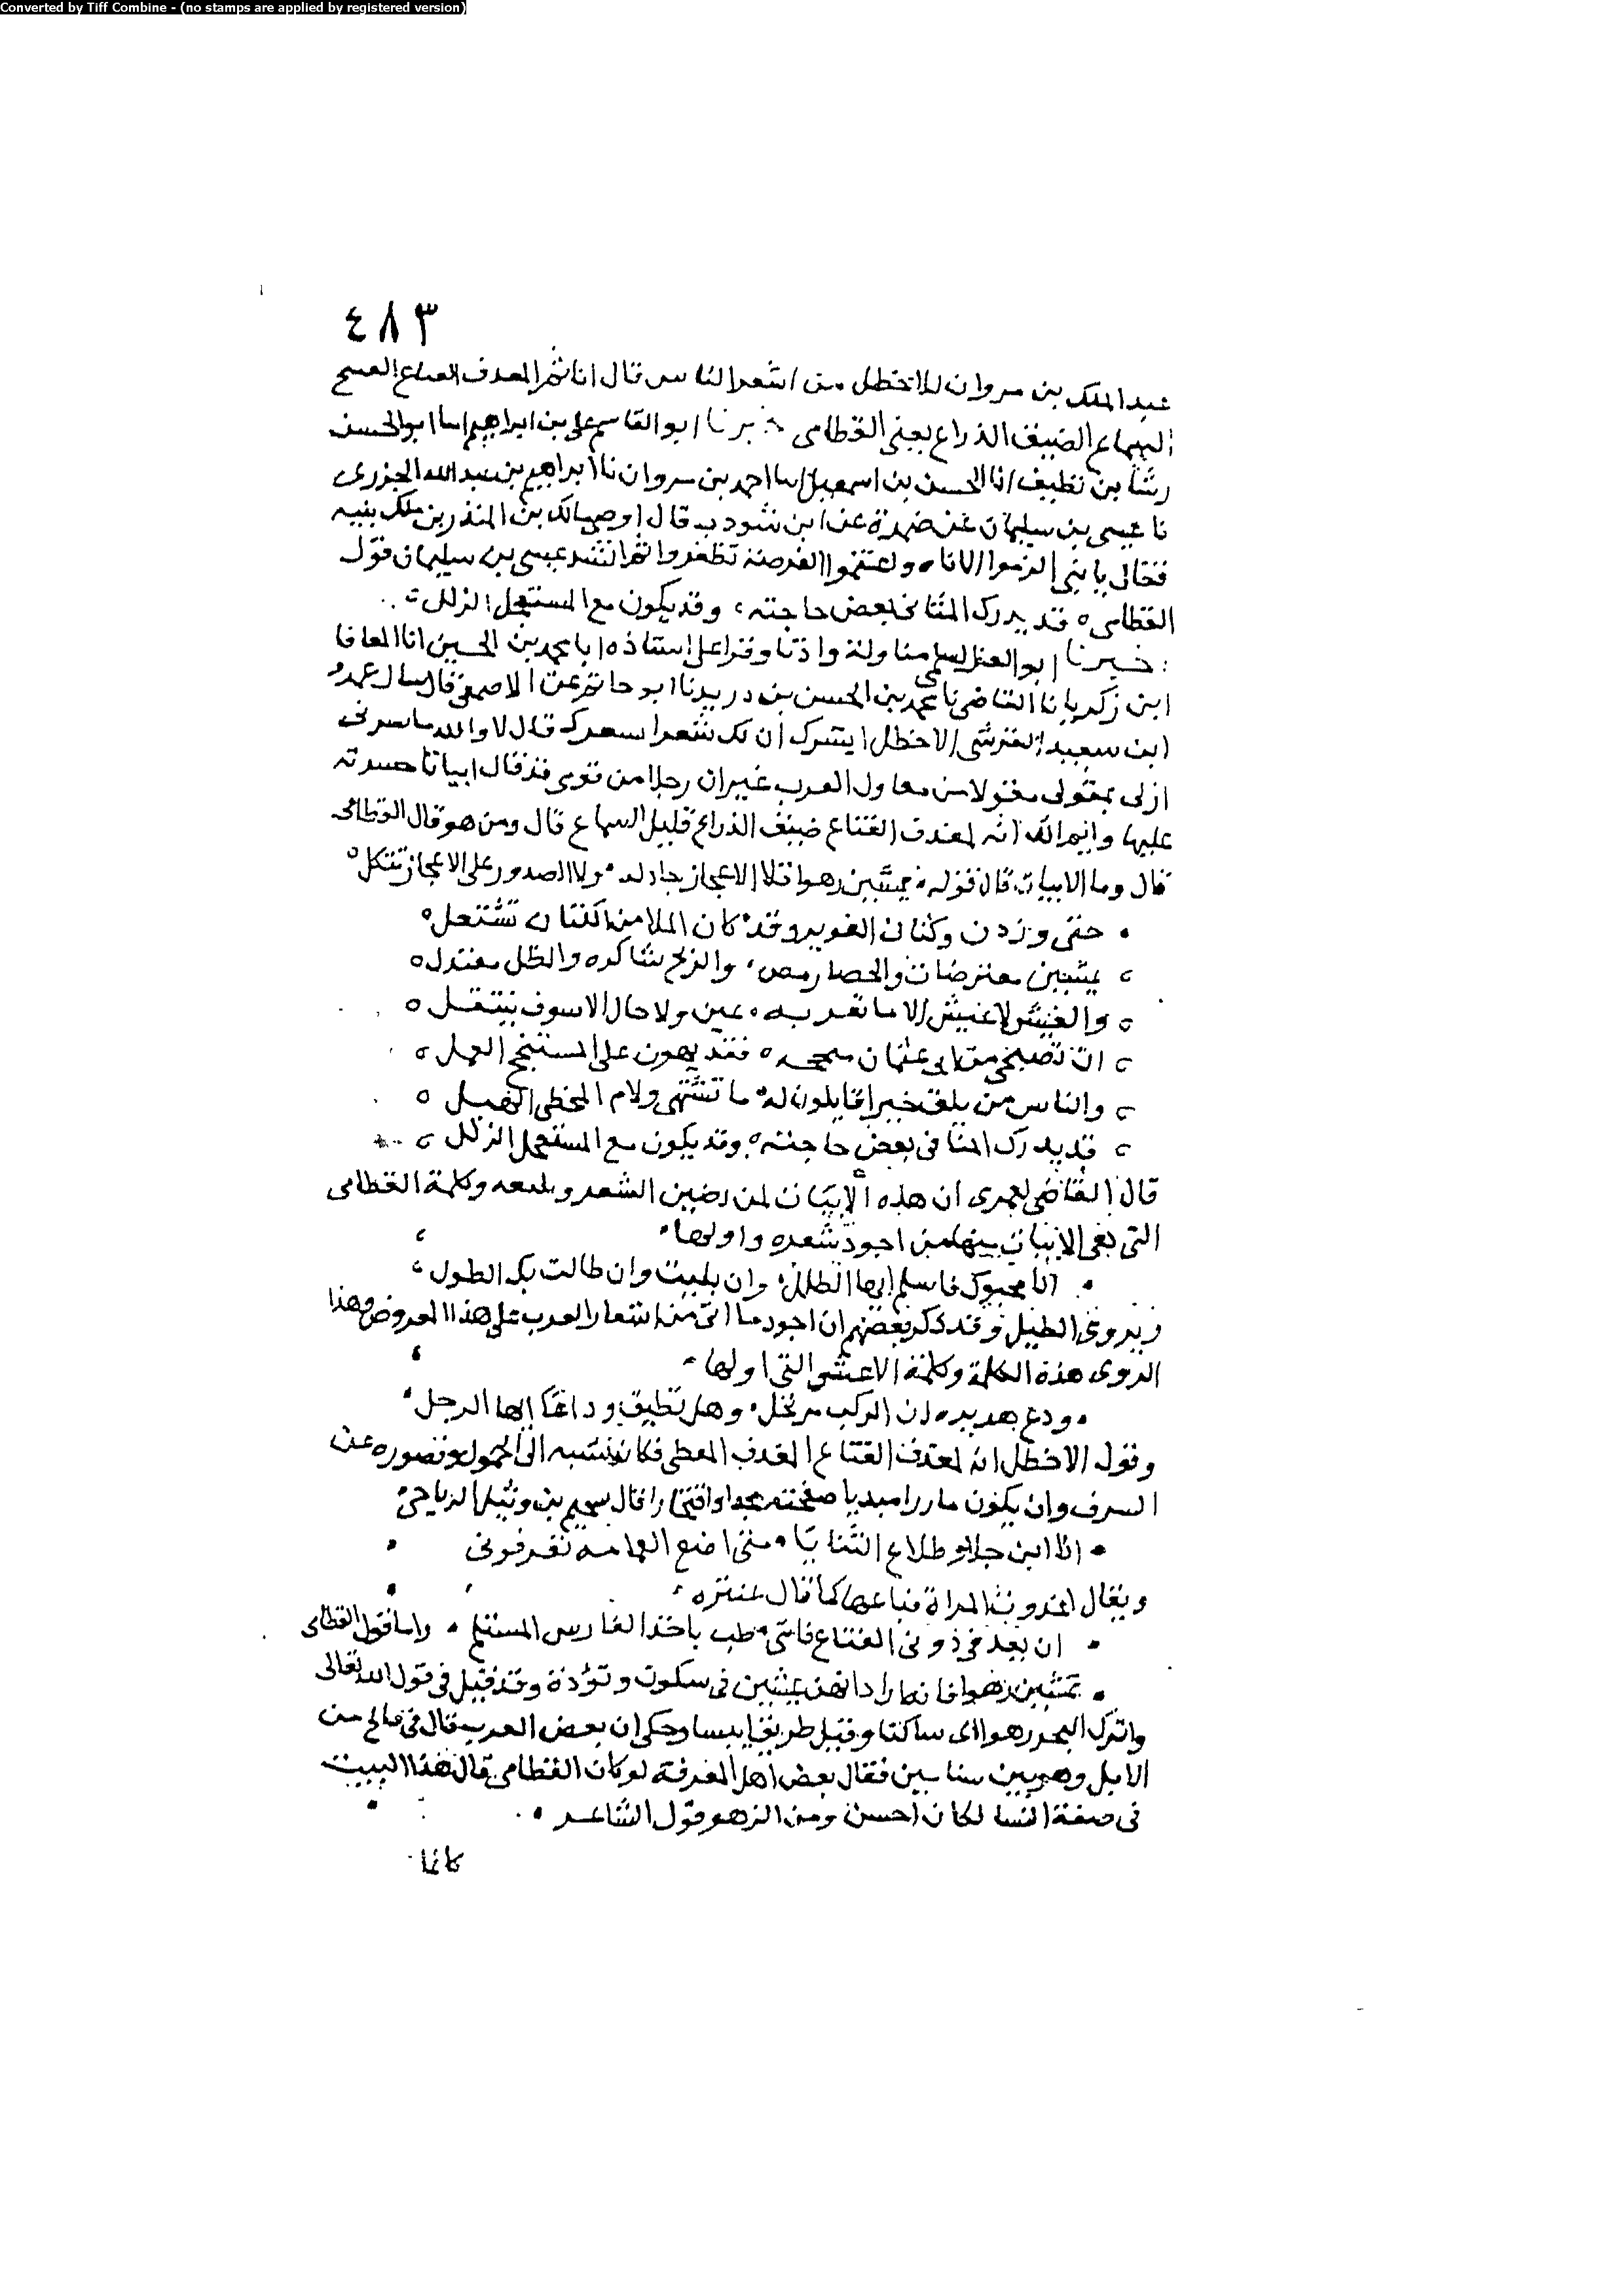 Converted by Tiff Combine - (no stamps are applied by registered version)
٤٨٣
عبد الملك بن مروان للاخطل من اشعر الناس قال انا ثم المغدف القناع القبيح
السماع الضيق الذراع يعني القطامي خبرنا ابو القاسم علي بن ابراهيم انا ابو الحسن
رشا بن نظيف انا الحسن بن اسمعيل انا احمد بن مروان نا ابراهيم بن عبد الله الجزري
نا عيسى بن سليمان عن ضمرة عن ابن شوذب قال اوصى مالك بن المنذر بن ملك بنيه
فقال يا بني الزموا الاناه واغتنموا الفرصة تظفروا ثم انشد عيسى بن سليمان قول
القطامي قد يدرك المتاني بعض حاجته وقد يكون مع المستعجل الزلل
خبرنا ابو العز السلمي مناولة واذنا وقرا على اسناده ابا محمد بن الحسين انا المعافا
ابن زكريا نا القاضي نا محمد بن الحسن بن دريد نا ابو حاتم عن الاصمعي قال سال عمرو
ابن سعيد القرشي الاخطل ايسرك ان لك شعرا بشعرك قال لا والله ما يسرني
ان لي بمقولي مقولا من مقاول العرب غير ان رجلا من قومي قد قال ابياتا حسدته
عليها وايم الله انه لمغدف القناع ضيق الذراع قليل السماع قال ومن هو قال القطامي
قال وما الابيات قال قوله يمشين رهوا فلا الاعجاز خاذله ولا الصدور على الاعجاز تتكل
حتى وردن وكنان الغوير وقد كان الملا من الكتان تشتعل
يمشين معترضات والحصا رمض والريح شاكره والظل معتدل
والعيش لا عيش الا ما تقر به عين ولا حال الا سوف ينتقل
ان تصبحي من ابي عثمان منجحه فقد يهون على المستنجح العمل
والناس من يلق خيرا قايلون له ما تشتهي ولام المخطي الهبل
قد يدرك المتاني بعض حاجته وقد يكون مع المستعجل الزلل
قال القاضي لعمري ان هذه الابيات لمن رصين الشعر وبليغه وكلمة القطامي
التي بقي الابيات بينها من اجود شعره واولها
انا محيوك فاسلم ايها الطلل وان بليت وان طالت بك الطول
ويروى الطيل وقد ذكر بعضهم ان اجود ما اتى من اشعار العرب على هذا العروض وهذا
الروي هذه الكلمة وكلمة الاعشى التي اولها
ودع هريره ان الركب مرتحل وهل تطيق وداعا ايها الرجل
وقول الاخطل انه لمغدف القناع المغدف المغطى فكانه نسبه الى الخمول وقصوره عن
السرف وان يكون بارزا مبديا صفحته مجدا وافتخارا قال سحيم بن وثيل الرياحي
انا ابن جلا وطلاع الثنايا متى اضع العمامه تعرفوني
ويقال اغدفت المراة قناعها كما قال عنتره
ان تغدفي دوني القناع فانني طب باخذ الفارس المستلم واما قول القطامي
يمشين رهوا فانما اراد انهن يمشين في سكون وتؤدة وقد قيل في قول الله تعالى
واترك البحر رهوا اي ساكنا وقيل طريقا يبسا وحكي ان بعض العرب قال في فالج من
الابل وهو بين سنامين فقال بعض اهل المعرفة لو كان القطامي قال هذا البيت
في صفة النسا لكان احسن ومن الرهو قول الشاعر
كانما